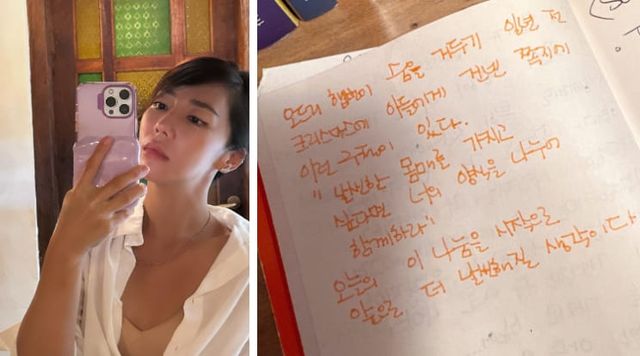 오드리 햅번이 숨을 거두기 일년 전
크리스마스에 아들에게 건넨 쪽지에
이런 구절이 있다.
"날씬한 몸매를 가지고
싶다면 너의 양식을 나누어
함께하라"
오늘의 이 나눔을 시작으로
앞으로 더 날씬해질 생각이다!